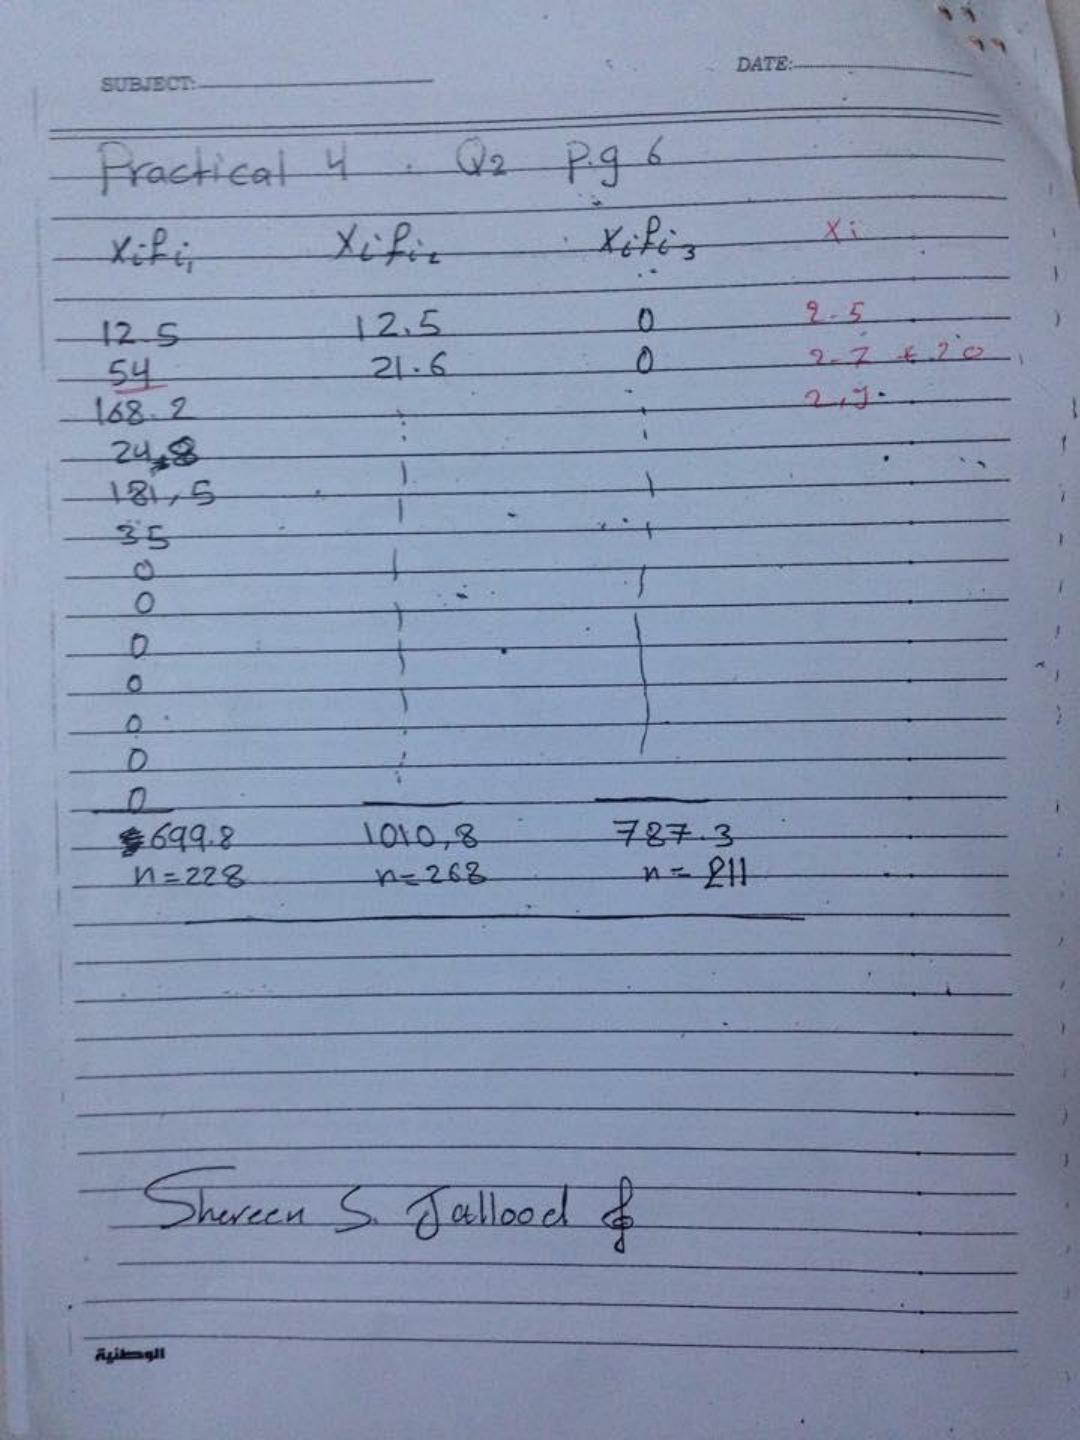 SUBJECT: DATE:
Practical 4 . Q2 p.g 6
Xifi1 Xifi2 Xifi3 Xi
12.5 12.5 0 2.5
54 21.6 0 2.7 * 20
168.2 2.9
24.8
181,5
35
0
0
0
0
0
0
0
699.8 1010,8 787.3
n=228 n=268 n=211
Shereen S. Jallood
الوطنية